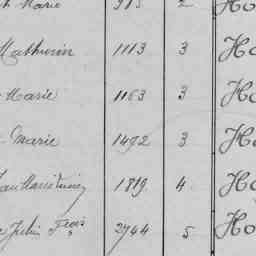 Marie 915 2 Ho
Mathurin 1113 3 Ho
Marie 1163 3 Ho
Marie 1492 3 Ho
1819 4 Ho
Julin Fçois 2744 5 Ho